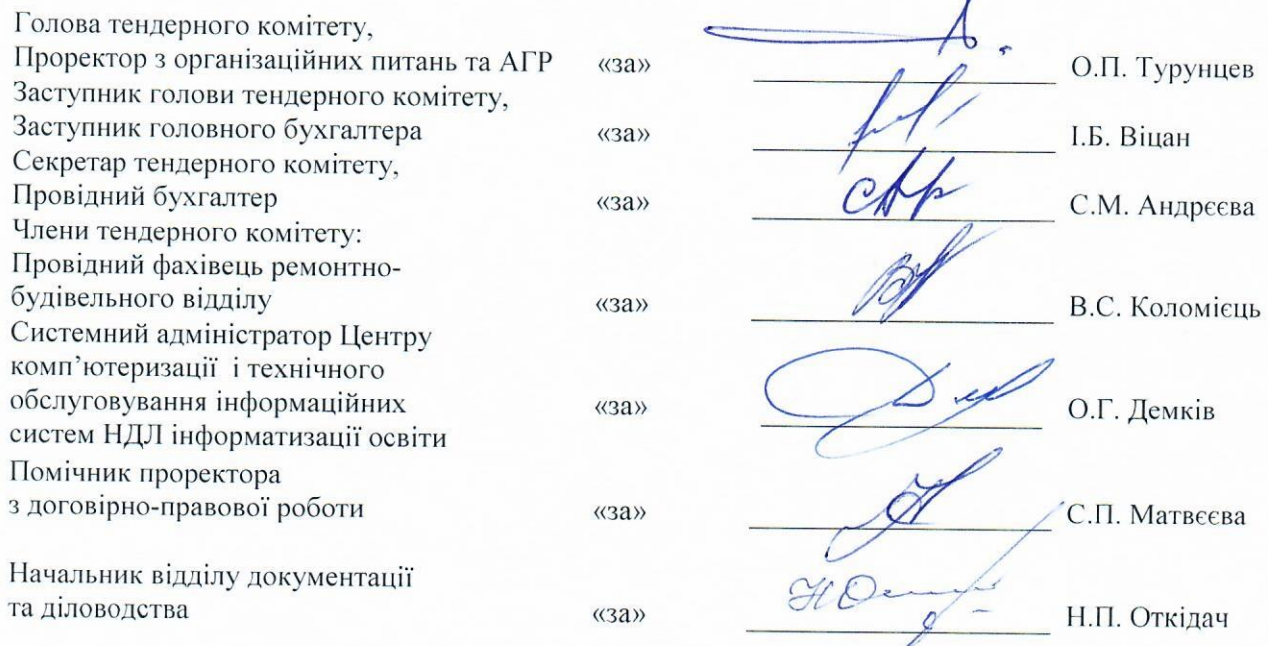 Голова тендерного комітету,
Проректор з організаційних питань та АГР «за» О.П. Турунцев
Заступник голови тендерного комітету,
Заступник головного бухгалтера «за» І.Б. Віцан
Секретар тендерного комітету,
Провідний бухгалтер «за» С.М. Андрєєва
Члени тендерного комітету:
Провідний фахівець ремонтно-
будівельного відділу «за» В.С. Коломієць
Системний адміністратор Центру
комп’ютеризації і технічного
обслуговування інформаційних «за» О.Г. Демків
систем НДЛ інформатизації освіти
Помічник проректора
з договірно-правової роботи «за» С.П. Матвєєва
Начальник відділу документації
та діловодства «за» Н.П. Откідач